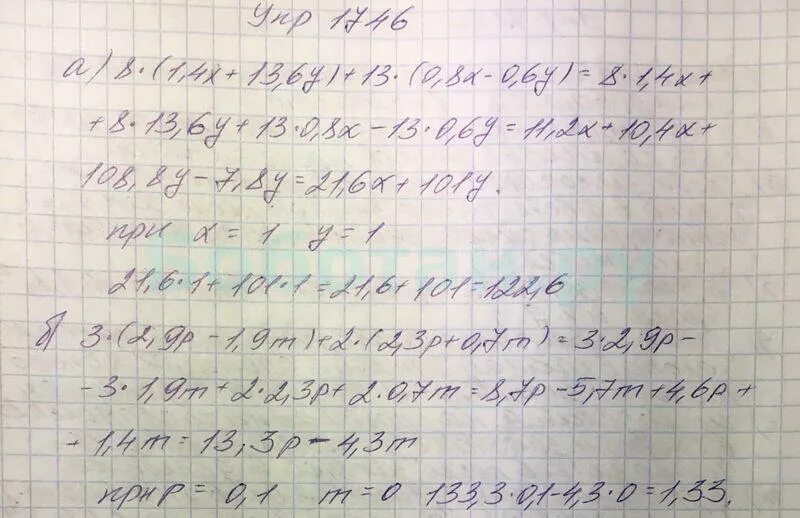 Упр 1746
а) 8·(1,4x+13,6y)+13·(0,8x-0,6y)=8·1,4x+
+8·13,6y+13·0,8x-13·0,6y=11,2x+10,4x+
108,8y-7,8y=21,6x+101y.
при x=1 y=1
21,6·1+101·1=21,6+101=122,6
б) 3·(2,9p-1,9m)+2·(2,3p+0,7m)=3·2,9p-
-3·1,9m+2·2,3p+2·0,7m=8,7p-5,7m+4,6p+
+1,4m=13,3p-4,3m
при p=0,1 m=0 133,3·0,1-4,3·0=1,33.